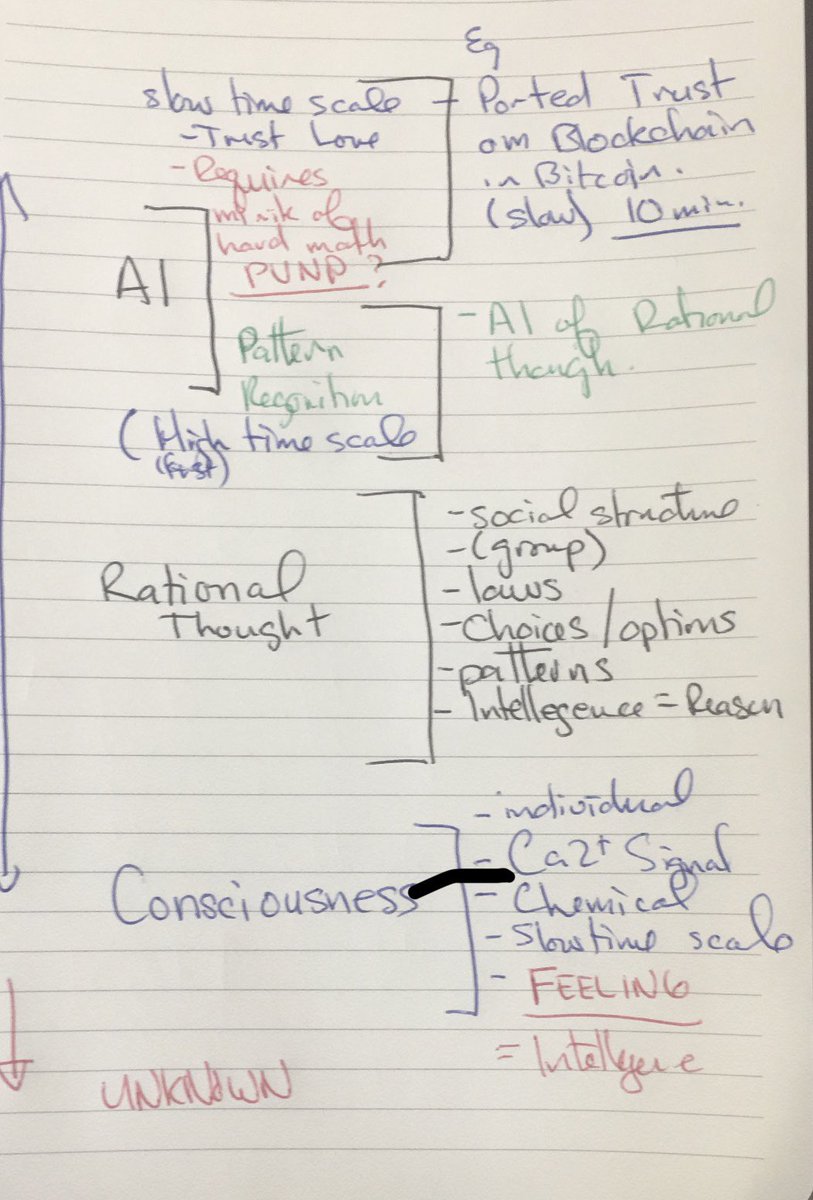 Eg
slow time scale - Ported Trust
- Trust Love om Blockchain
- Requires in Bitcoin.
of (slow) 10 min.
hard math
AI PVNP?
Pattern - AI of Rational
Recognition though.
(High time scale
(fast)
- social structure
- (group)
Rational - laws
Thought - Choices/options
- patterns
- Intellegence = Reason
- individual
- Ca2+ Signal
Consciousness - Chemical
- Slow time scale
- FEELING
= Intellgence
UNKNOWN